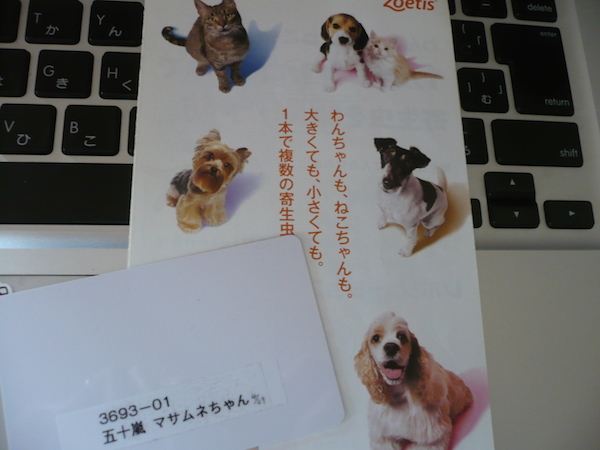 zoetis
わんちゃんも、ねこちゃんも。
大きくても、小さくても。
1本で複数の寄生虫
3693-01
五十嵐 マサムネちゃん
T
か
Y
ん
G
き
H
く
V
ひ
B
こ
む
delete
return
shift